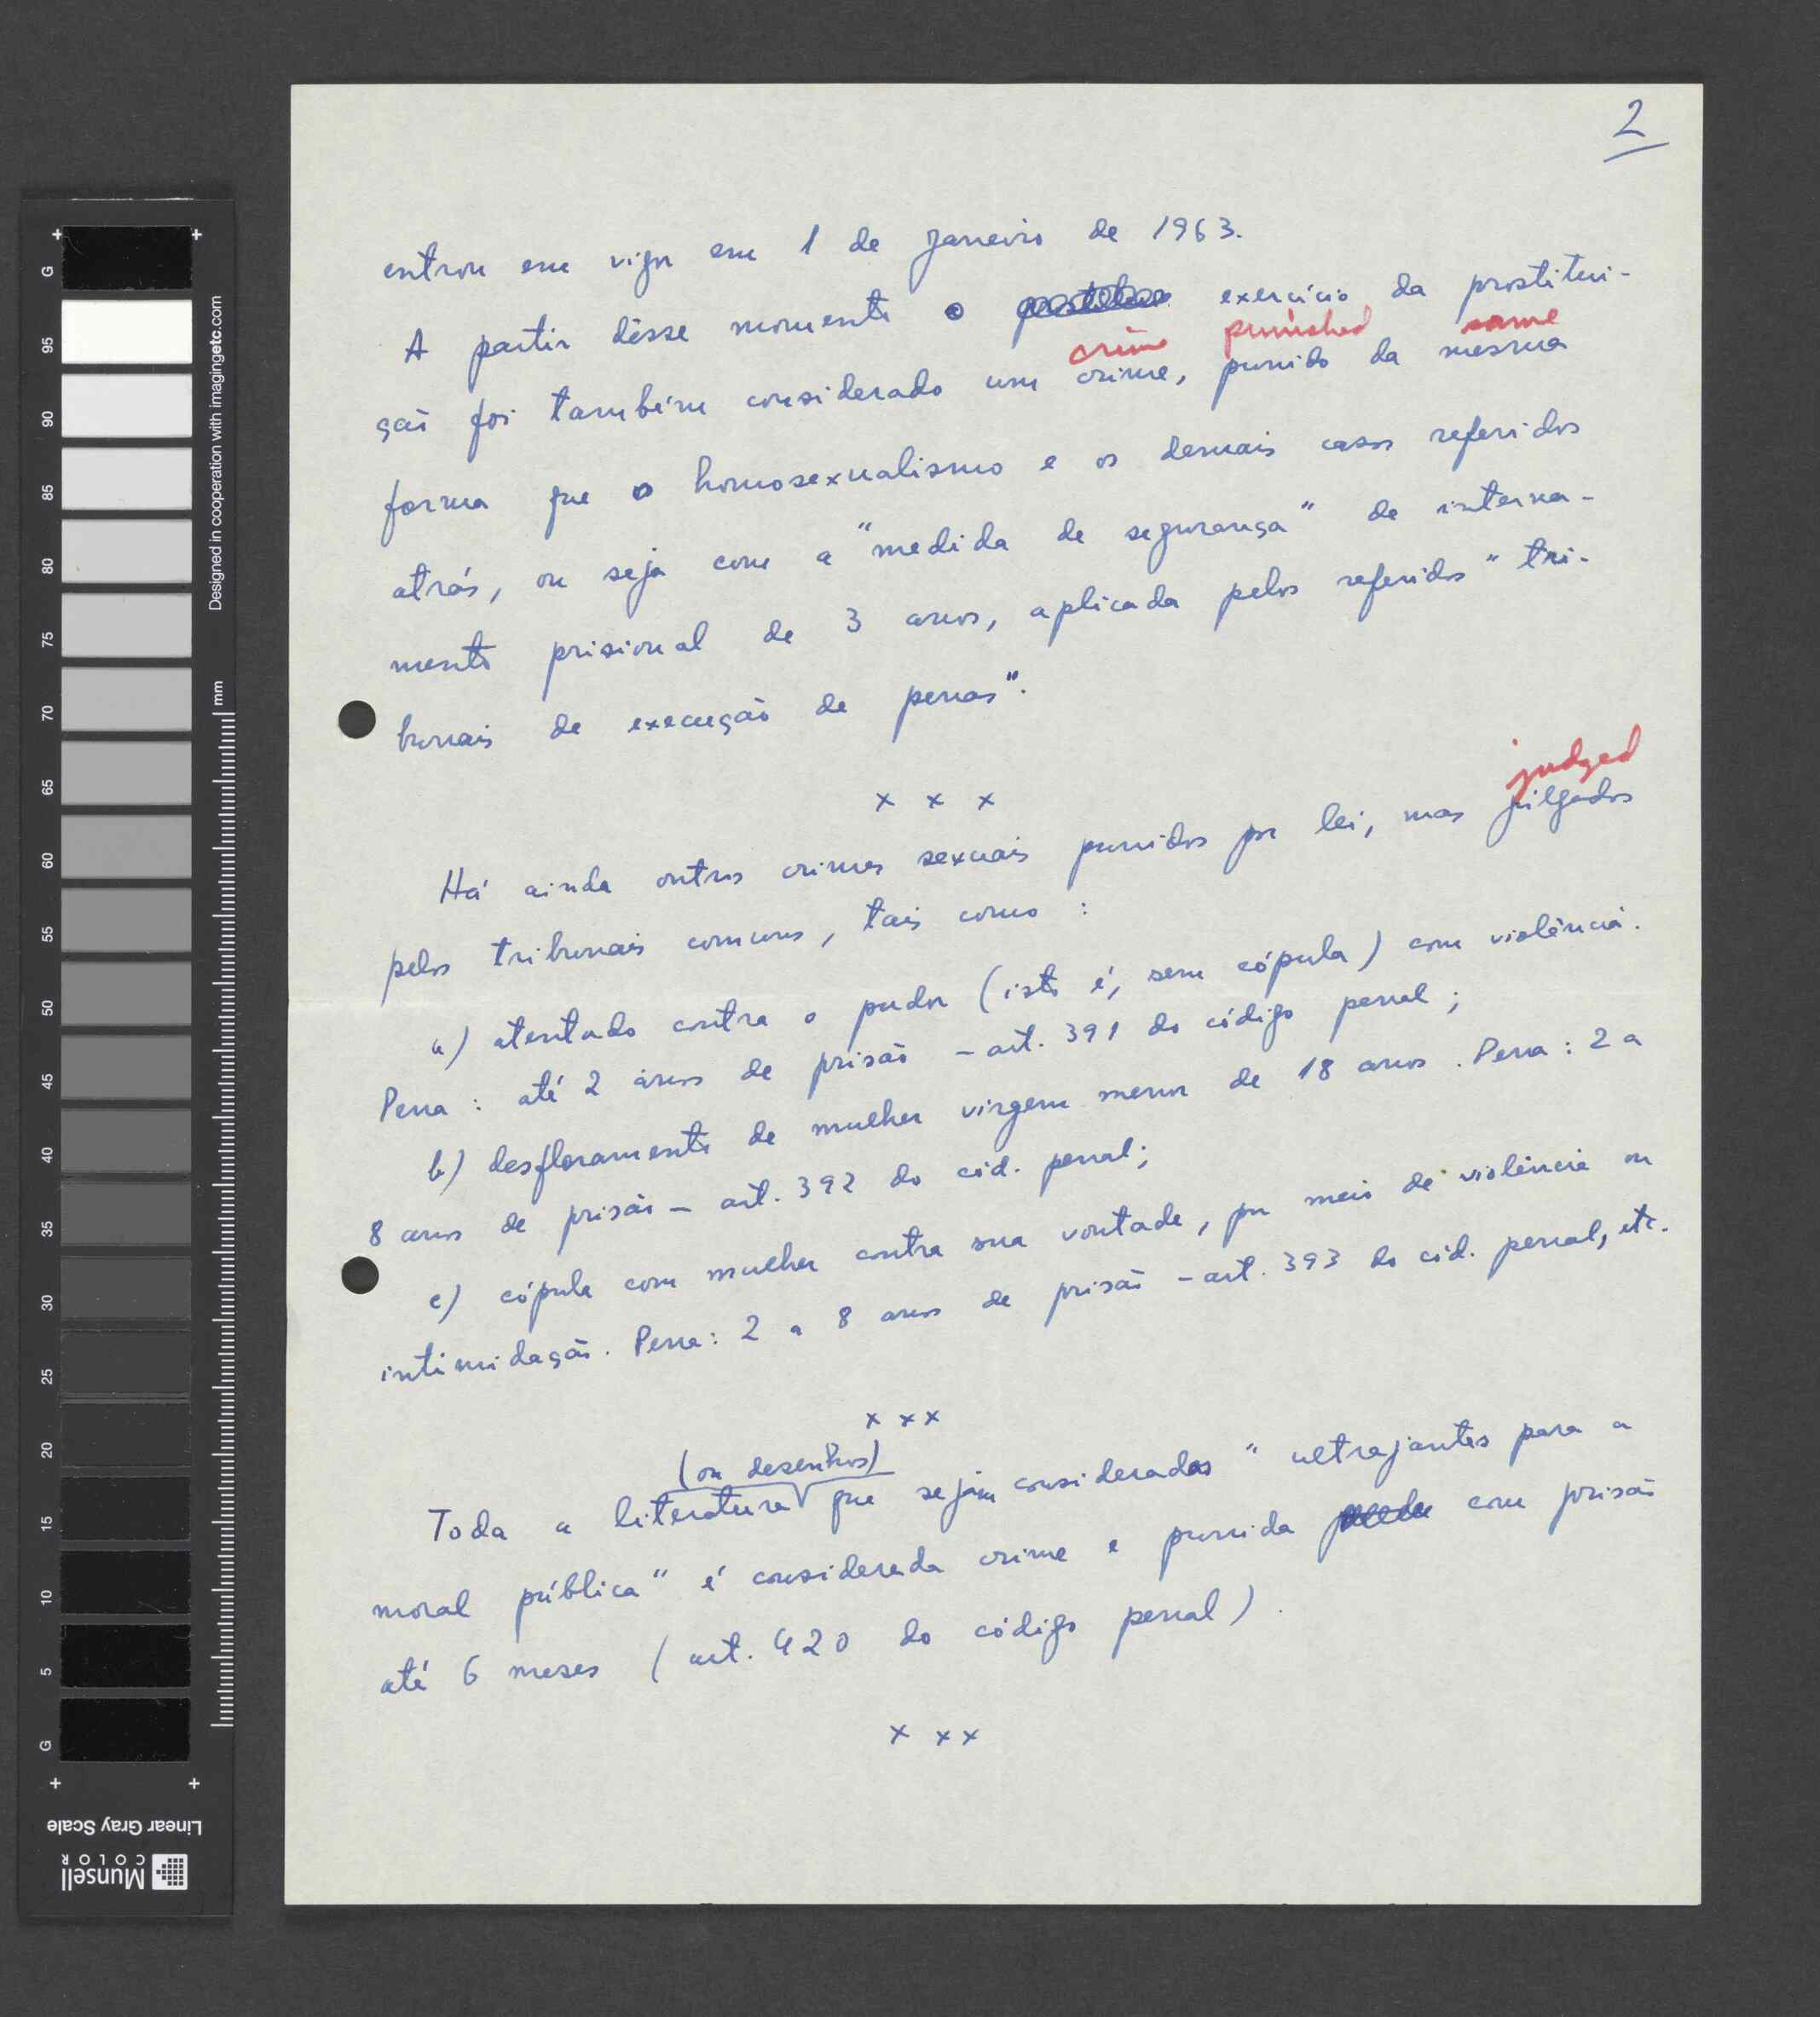 2
entrou em vigor em 1 de Janeiro de 1963.
A partir dêsse momento o exercício da prostitui-
crime punished same
ção foi também considerado um crime, punido da mesma
forma que o homosexualismo e os demais casos referidos
atrás, ou seja com a "medida de segurança" de interna-
mento prisional de 3 anos, aplicada pelos referidos "tri-
bunais de execução de penas".
x x x
judged
Há ainda outros crimes sexuais punidos por lei, mas julgados
pelos tribunais comuns, tais como :
a) atentado contra o pudor (isto é, sem cópula) com violência.
Pena : até 2 anos de prisão - art. 391 do código penal ;
b) desfloramento de mulher virgem menor de 18 anos. Pena : 2 a
8 anos de prisão - art. 392 do cód. penal;
c) cópula com mulher contra sua vontade, por meio de violência ou
intimidação. Pena: 2 a 8 anos de prisão - art. 393 do cód. penal, etc.
x x x
(ou desenhos)
Toda a literatura que sejam consideradas "ultrajantes para a
moral pública" é considerada crime e punida com prisão
até 6 meses (art. 420 do código penal).
x x x
G
95
90
85
80
75
70
65
60
55
50
45
40
35
30
25
20
15
10
5
G
Designed in cooperation with imagingetc.com
mm
Linear Gray Scale
Munsell
COLOR